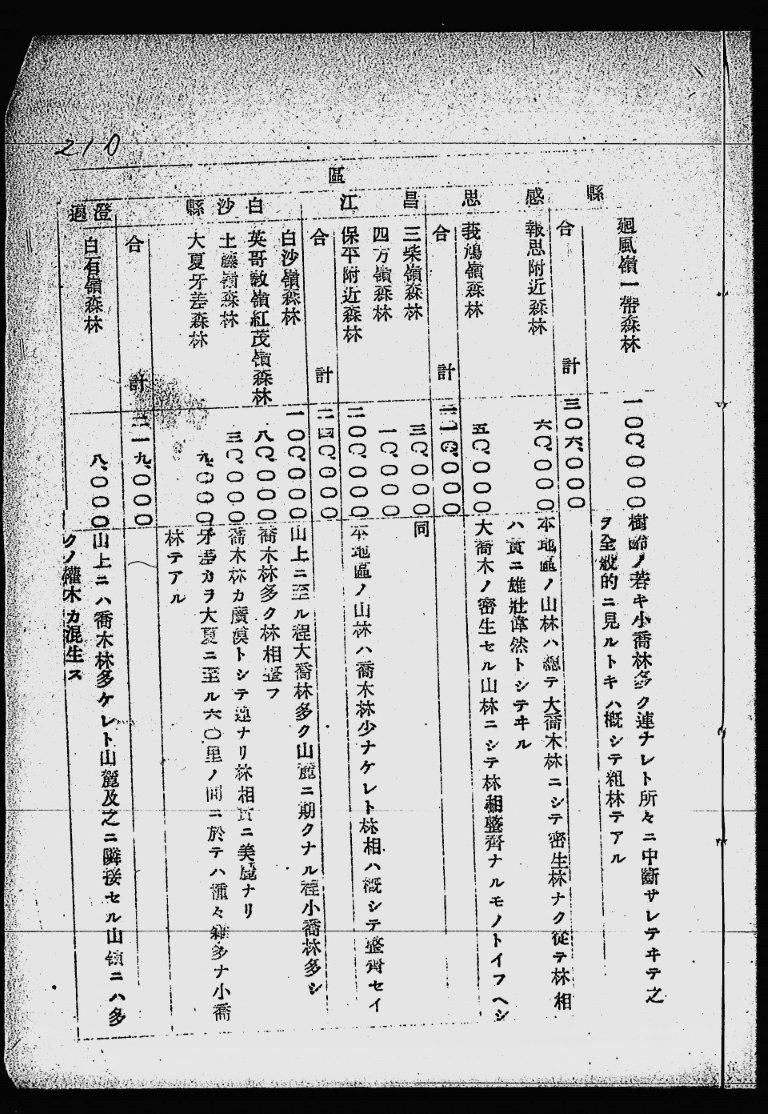 210
區
縣
廻風嶺一帶森林 一〇〇、〇〇〇 樹齡ノ若キ小喬林多ク連ナレト所々ニ中斷サレテヰテ之
ヲ全般的ニ見ルトキハ概シテ粗林テアル
合計 三〇六、〇〇〇
感
報思附近森林 六〇、〇〇〇 本地區ノ山林ハ總テ大喬木林ニシテ密生林ナク從テ林相
ハ實ニ雄壯偉然トシテヰル
思
我鳩嶺森林 五〇、〇〇〇 大喬木ノ密生セル山林ニシテ林相整齊ナルモノトイフヘシ
合計 〇、〇〇〇
昌
三柴嶺森林 三〇、〇〇〇 同
四方嶺森林 一〇、〇〇〇
江
保平附近森林 二〇〇、〇〇〇 本地區ノ山林ハ喬木林少ナケレト林相ハ概シテ整齊セイ
合計 二四〇、〇〇〇
白沙縣
白沙嶺森林 一〇〇、〇〇〇 山上ニ至ル程大喬林多ク山麓ニ期クナル程小喬林多シ
英哥敏嶺紅茂嶺森林 八〇、〇〇〇 喬木林多ク林相整フ
土藤嶺森林 三〇、〇〇〇 喬木林カ廣漠トシテ連ナリ林相實ニ美麗ナリ
大夏牙差森林 九、〇〇〇 牙差カヲ大夏ニ至ル六〇里ノ間ニ於テハ種々雜多ナ小喬
林テアル
合計 二一九、〇〇〇
澄邁
白石嶺森林 八、〇〇〇 山上ニハ喬木林多ケレト山麓及之ニ隣接セル山嶺ニハ多
クノ權木カ混生ス